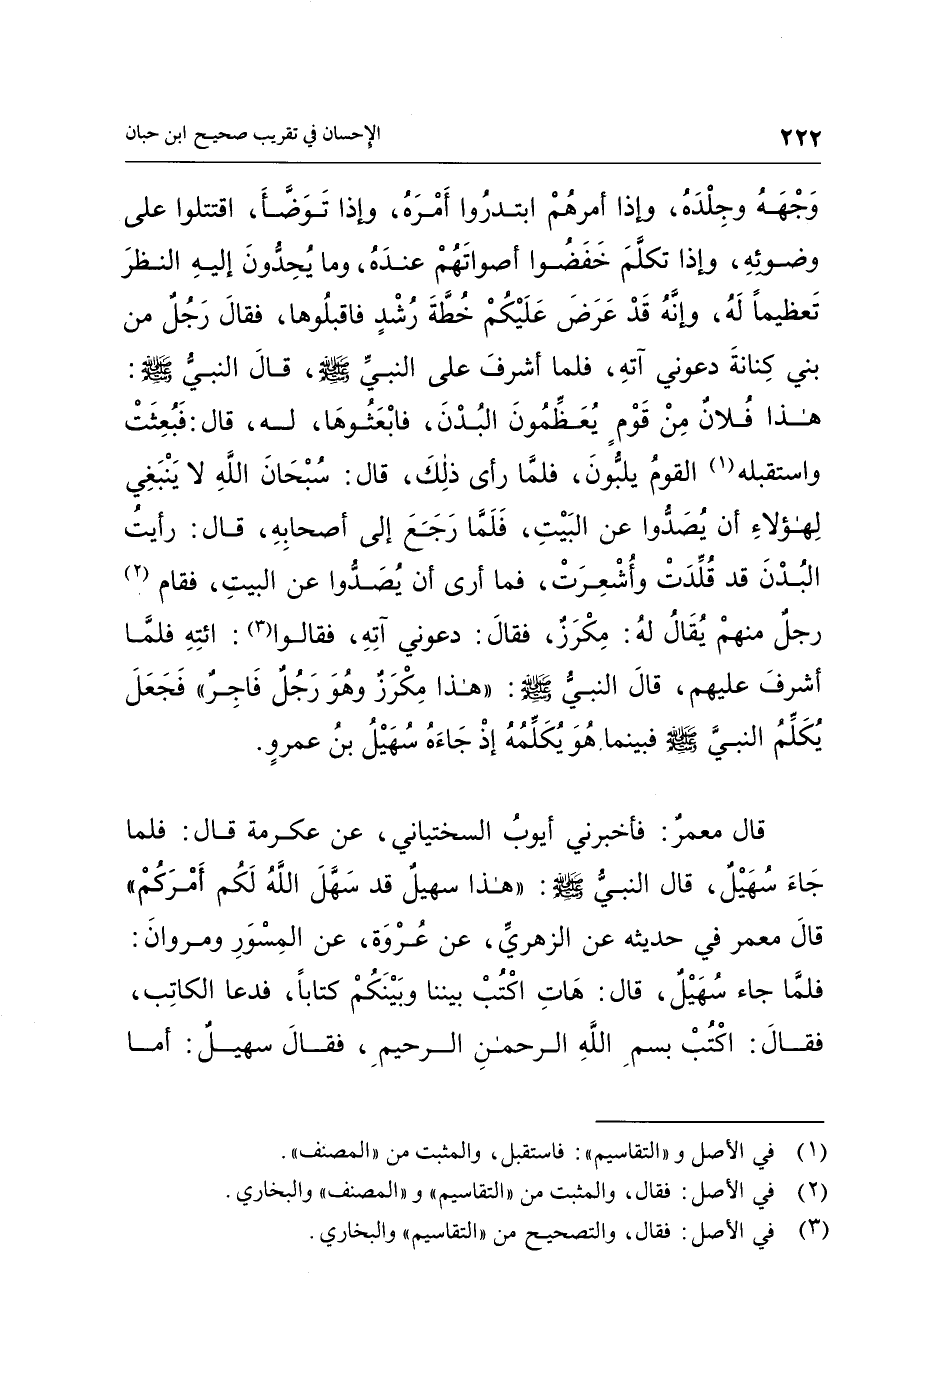 ٢٢٢ الإحسان في تقريب صحيح ابن حبان
وَجْهَهُ وجِلْدَهُ، وإذا أمرهُمْ ابتدرُوا أَمْرَهُ، وإذا تَوَضَّأَ، اقتتلوا على
وضوئِهِ، وإذا تكلَّمَ خَفَضُوا أصواتَهُمْ عندَهُ، وما يُحِدُّونَ إليهِ النظرَ
تَعظيماً لَهُ، وإنَّهُ قَدْ عَرَضَ عَلَيْكُمْ خُطَّةَ رُشْدٍ فاقبلُوها، فقالَ رَجُلٌ من
بني كِنانةَ دعوني آتهِ، فلما أشرفَ على النبيِّ ﷺ، قالَ النبيُّ ﷺ:
هٰذا فُلانٌ مِنْ قَوْمٍ يُعَظِّمُونَ البُدْنَ، فابْعَثُوهَا، له، قال: فَبُعِثَتْ
واستقبله(١) القومُ يلبُّونَ، فلمَّا رأى ذٰلِكَ، قال: سُبْحَانَ اللَّهِ لا يَنْبَغِي
لِهٰؤلاءِ أن يُصَدُّوا عن البَيْتِ، فَلَمَّا رَجَعَ إلى أصحابِهِ، قال: رأيتُ
البُدْنَ قد قُلِّدَتْ وأُشْعِرَتْ، فما أرى أن يُصَدُّوا عن البيتِ، فقام (٢)
رجلٌ منهمْ يُقَالُ لهُ: مِكْرَزٌ، فقالَ: دعوني آتِهِ، فقالوا(٣): ائتِهِ فلمَّا
أشرفَ عليهم، قالَ النبيُّ ﷺ: «هٰذا مِكْرَزٌ وهُوَ رَجُلٌ فَاجِرٌ» فَجَعَلَ
يُكَلِّمُ النبيَّ ﷺ فبينما هُوَ يُكَلِّمُهُ إذْ جَاءَهُ سُهَيْلُ بنُ عمروٍ.
قال معمرٌ: فأخبرني أيوبُ السختياني، عن عكرمة قال: فلما
جَاءَ سُهَيْلٌ، قال النبيُّ ﷺ: «هٰذا سهيلٌ قد سَهَّلَ اللَّهُ لَكُم أَمْرَكُمْ»
قالَ معمر في حديثه عن الزهريِّ، عن عُرْوَة، عن المِسْوَرِ ومروانَ:
فلمَّا جاء سُهَيْلٌ، قال: هَاتِ اكْتُبْ بيننا وبَيْنَكُمْ كتاباً، فدعا الكاتِب،
فقالَ: اكْتُبْ بسمِ اللَّهِ الرحمٰنِ الرحيمِ، فقالَ سهيلٌ: أما
(١) في الأصل و «التقاسيم»: فاستقبل، والمثبت من «المصنف».
(٢) في الأصل: فقال، والمثبت من «التقاسيم» و «المصنف» والبخاري.
(٣) في الأصل: فقال، والتصحيح من «التقاسيم» والبخاري.